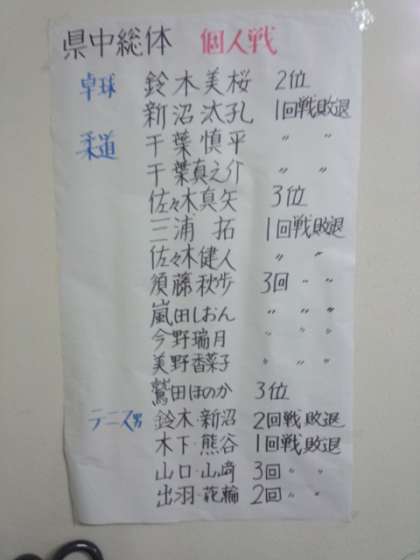 県中総体 個人戦
卓球 鈴木美桜 2位
新沼汰孔 1回戦敗退
柔道 千葉慎平 〃 〃
千葉真之介 〃 〃
佐々木真矢 3位
三浦 拓 1回戦敗退
佐々木健人 〃 〃
須藤秋歩 3回 〃 〃
嵐田しおん 〃 〃 〃
今野瑞月 〃 〃 〃
美野香菜子 〃 〃 〃
鷲田ほのか 3位
テニス男 鈴木・新沼 2回戦敗退
木下・熊谷 1回戦敗退
山口・山﨑 3回 〃 〃
出羽・花輪 2回 〃 〃